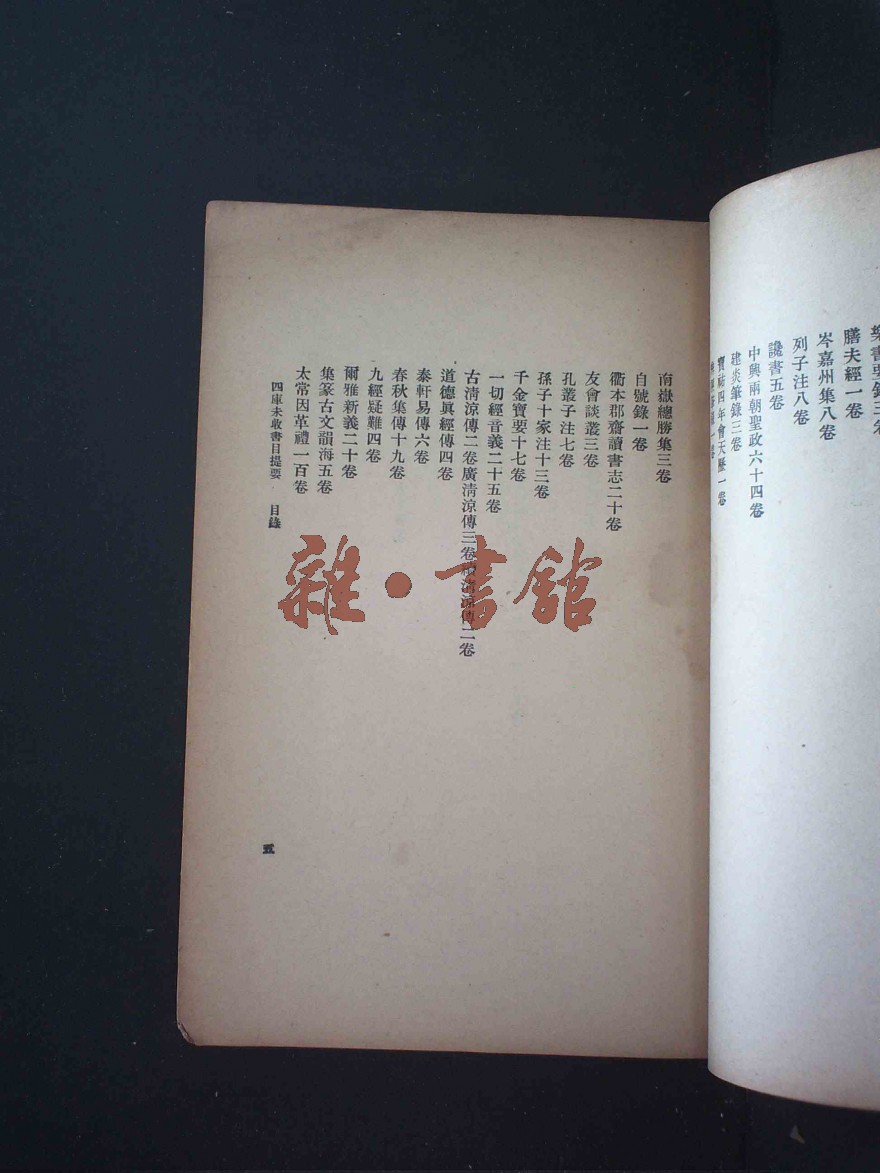 樂書要錄三卷
膳夫經一卷
岑嘉州集八卷
列子注八卷
讒書五卷
中興兩朝聖政六十四卷
建炎筆錄三卷
寶祐四年會天歷一卷
南嶽總勝集三卷
自號錄一卷
衢本郡齋讀書志二十卷
友會談叢三卷
孔叢子注七卷
孫子十家注十三卷
千金寶要十七卷
一切經音義二十五卷
古清涼傳二卷廣清涼傳三卷續清涼傳二卷
道德眞經傳四卷
泰軒易傳六卷
春秋集傳十九卷
九經疑難四卷
爾雅新義二十卷
集篆古文韻海五卷
太常因革禮一百卷
四庫未收書目提要 目錄
五
雜·書館